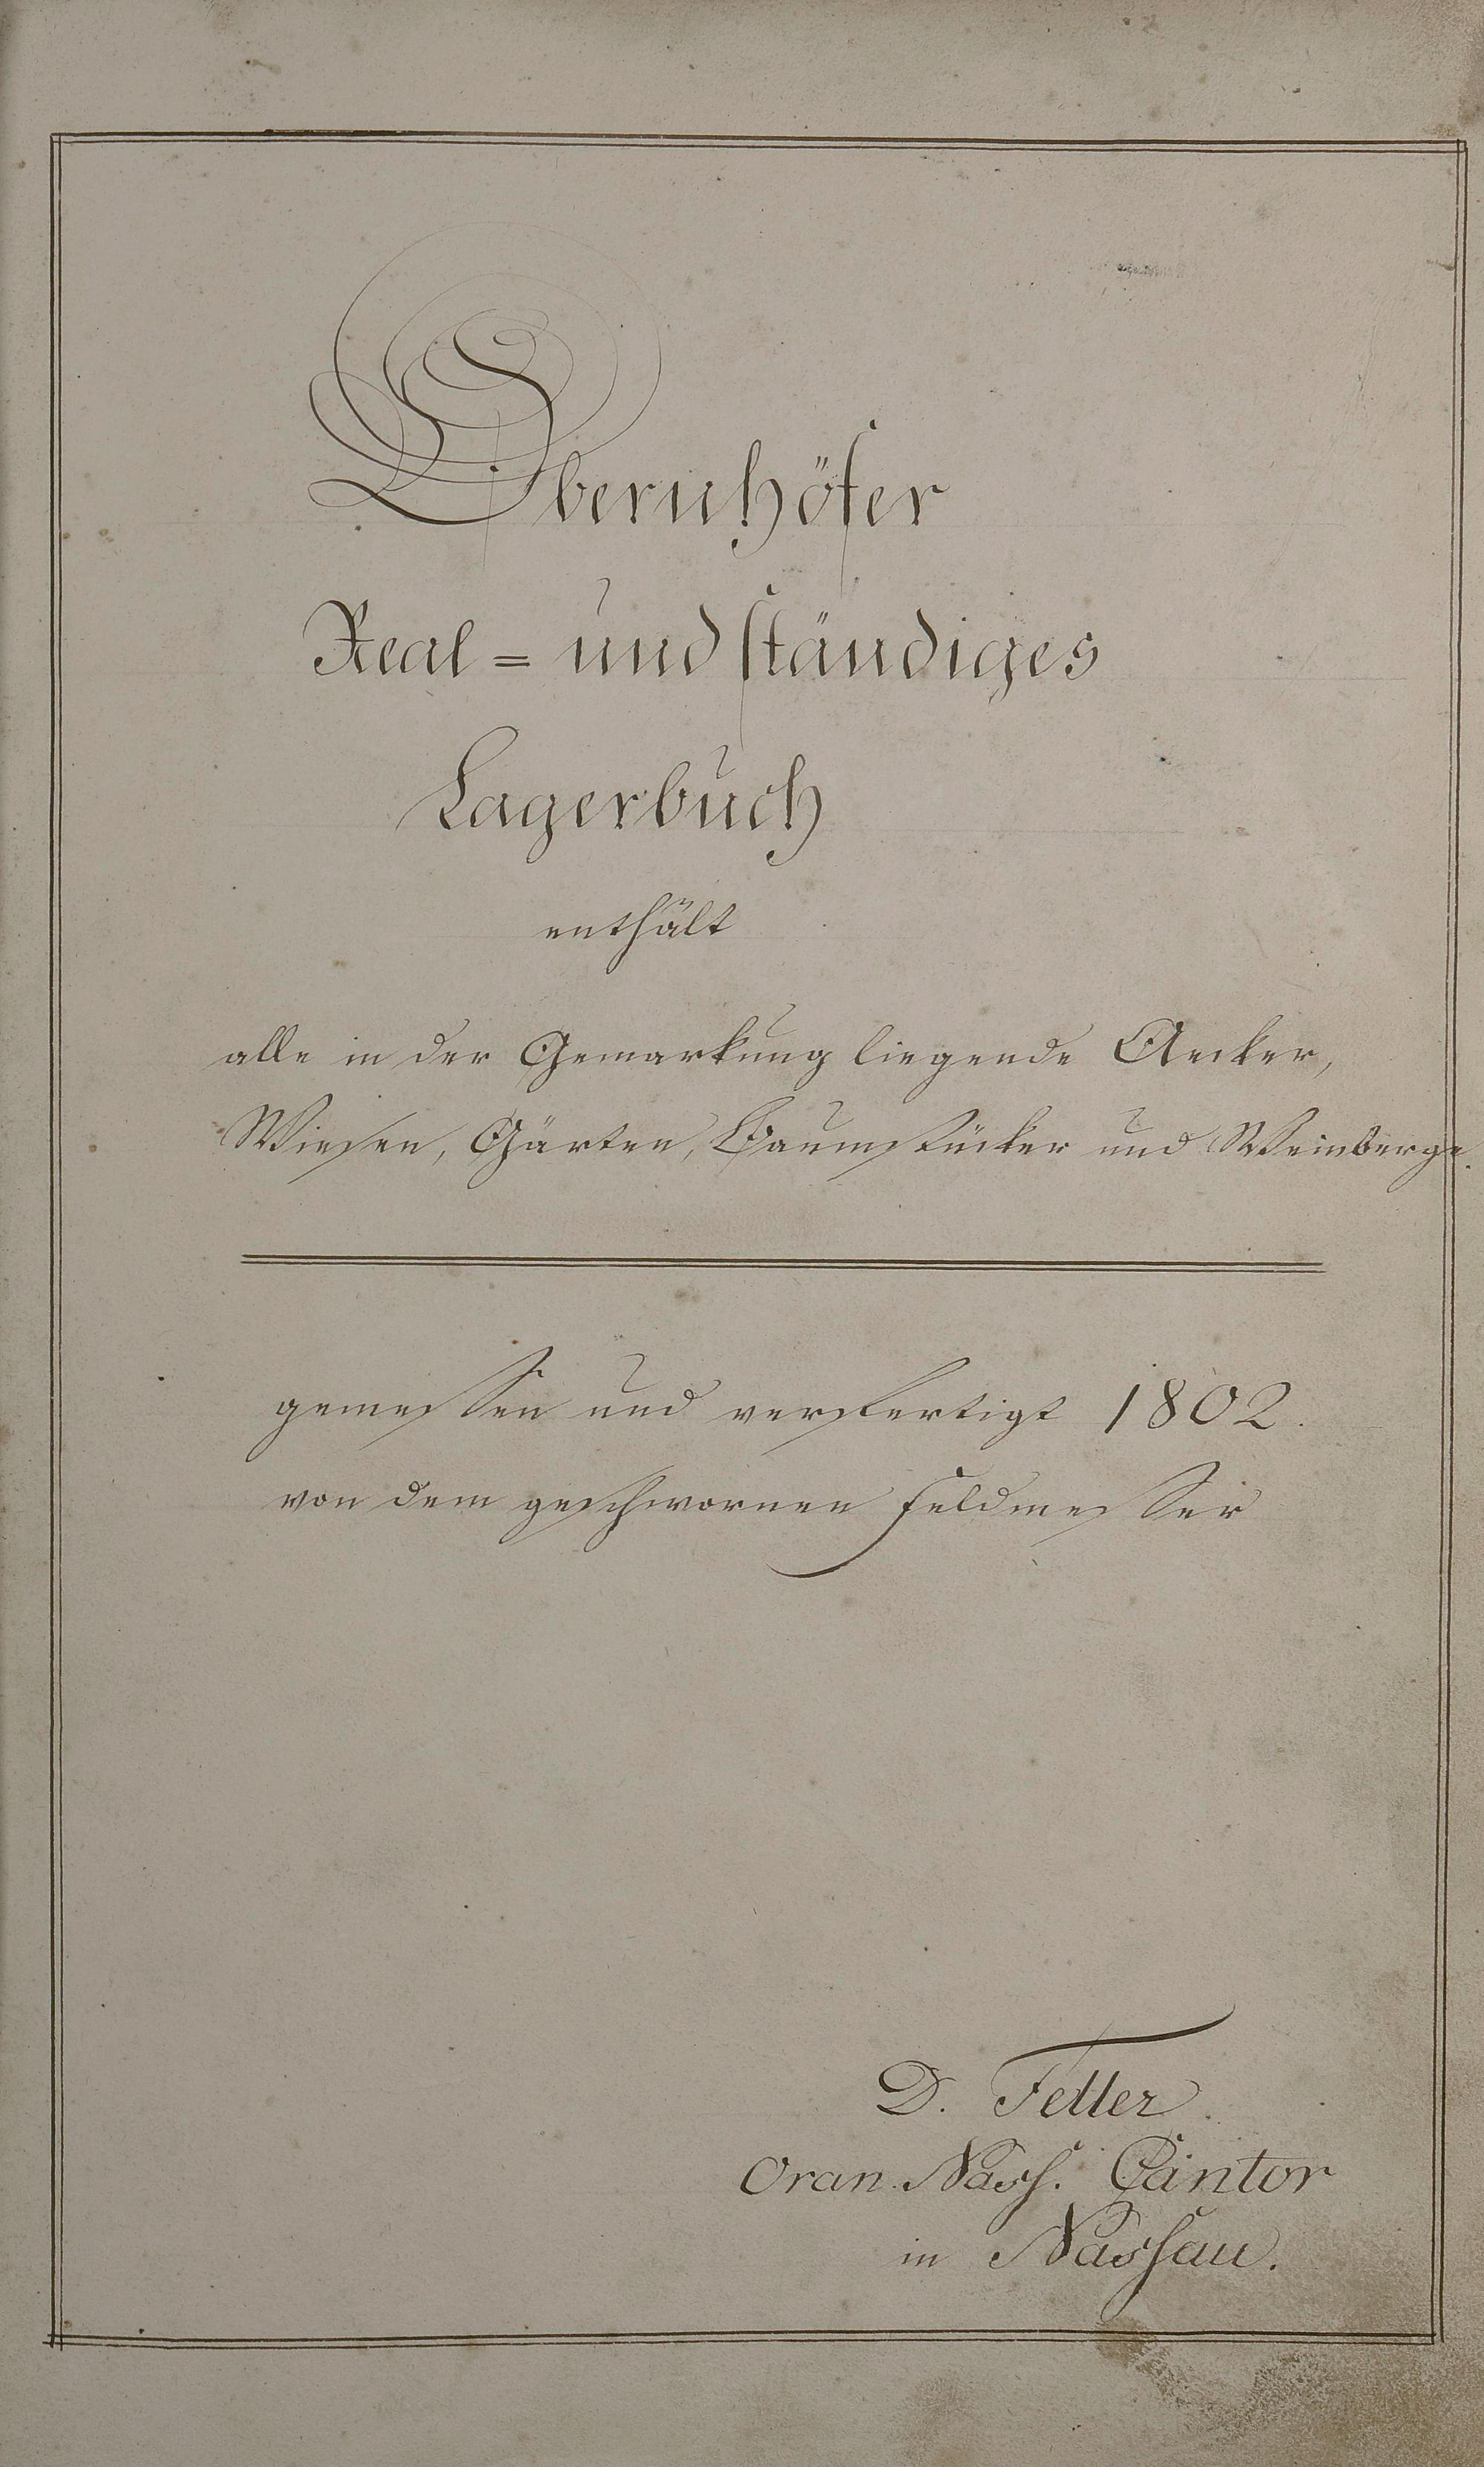 Obernhöfer
Real = und ständiges
Lagerbuch
enthält
alle in der Gemarkung liegende Aecker,
Wiesen, Gärten, Baumstücker und Weinberge.
gemessen und verfertigt 1802.
von dem geschwornen Feldmesser
D. Fetter
Oran. Nass. Cantor
in Nassau.